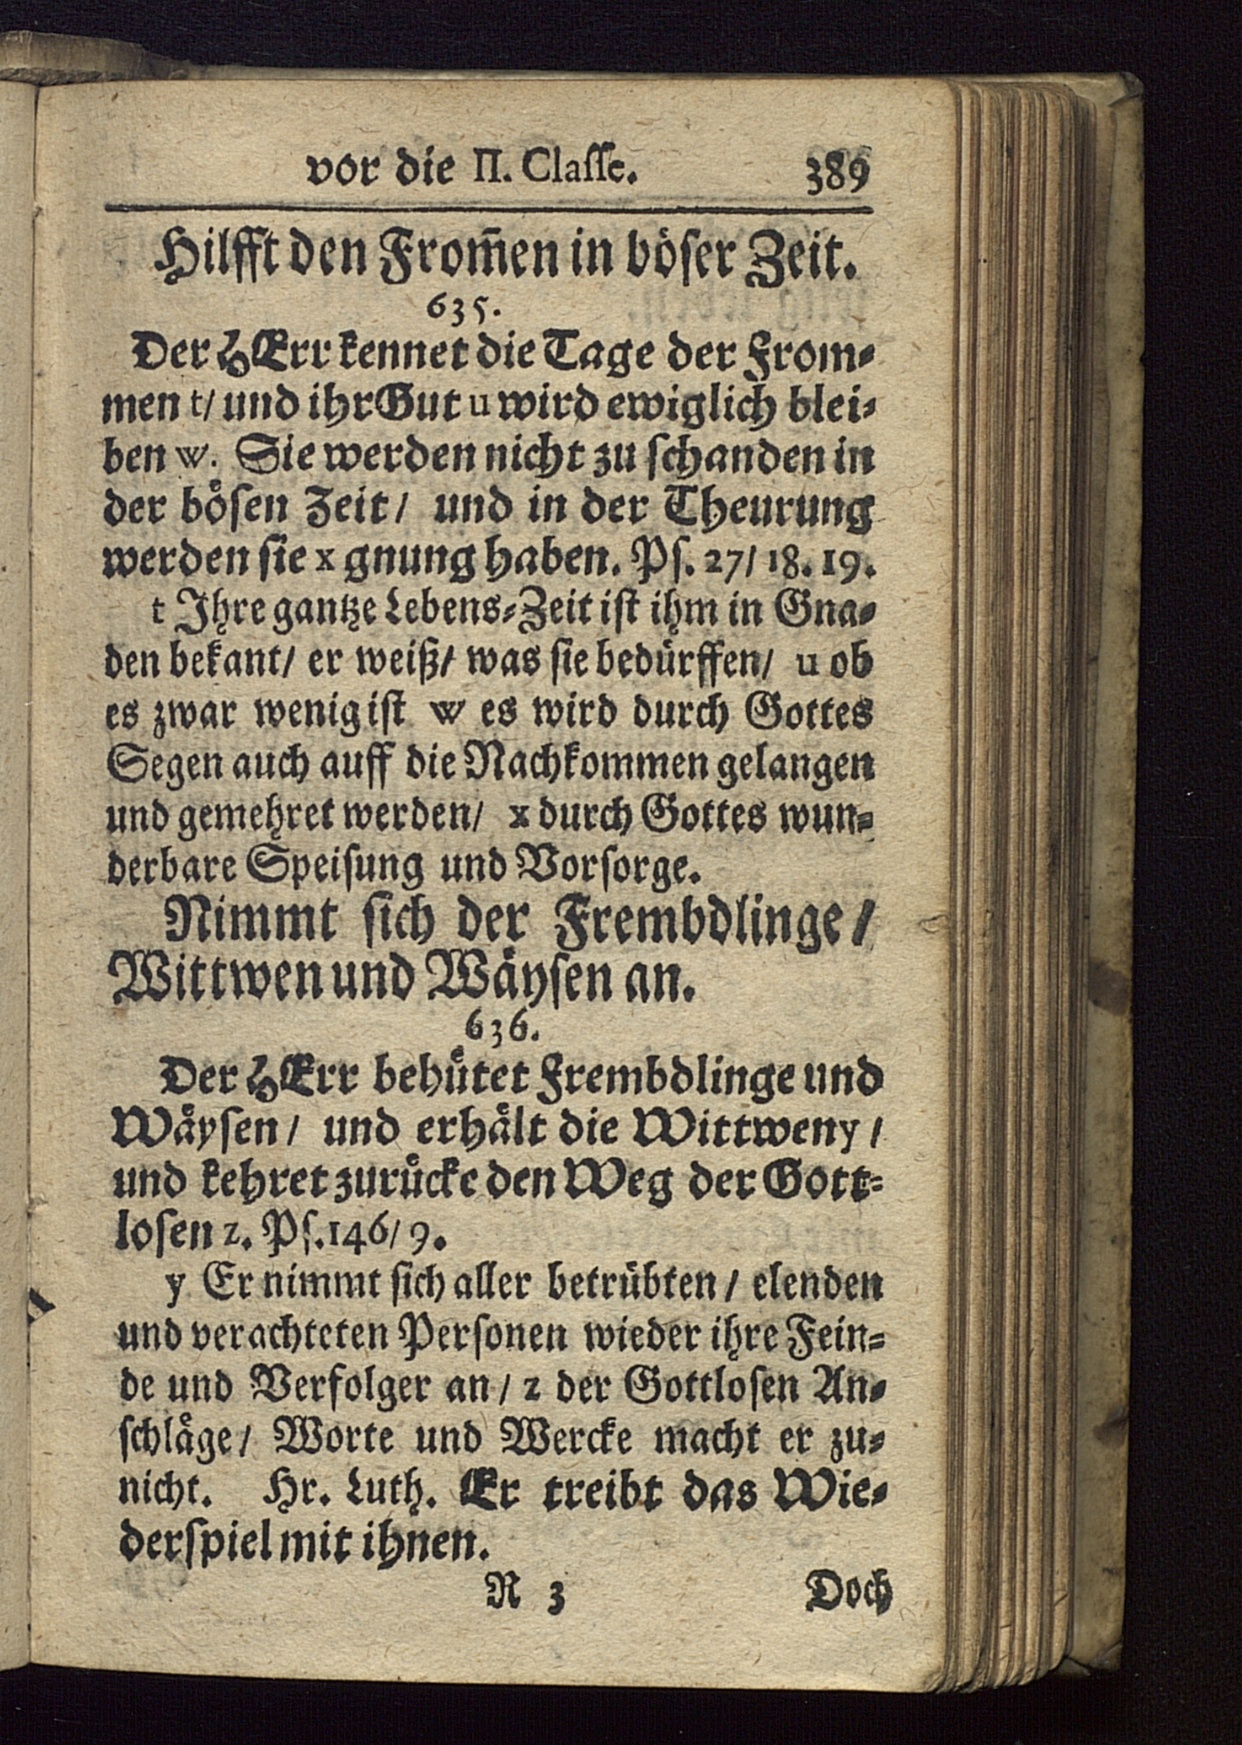 vor die II. Classe. 389
Hilfft den From̄en in böser Zeit.
635.
Der HErr kennet die Tage der From-
men t/ und ihr Gut u wird ewiglich blei-
ben w. Sie werden nicht zu schanden in
der bösen Zeit/ und in der Theurung
werden sie x gnung haben. Ps. 27/ 18. 19.
t Ihre gantze Lebens-Zeit ist ihm in Gna-
den bekant/ er weiß/ was sie bedürffen/ u ob
es zwar wenig ist w es wird durch Gottes
Segen auch auff die Nachkommen gelangen
und gemehret werden/ x durch Gottes wun-
derbare Speisung und Vorsorge.
Nimmt sich der Frembdlinge/
Wittwen und Wäysen an.
636.
Der HErr behütet Frembdlinge und
Wäysen/ und erhält die Wittwen y/
und kehret zurücke den Weg der Gott-
losen z. Ps. 146/ 9.
y Er nimmt sich aller betrübten/ elenden
und verachteten Personen wieder ihre Fein-
de und Verfolger an/ z der Gottlosen An-
schläge/ Worte und Wercke macht er zu-
nicht. Hr. Luth. Er treibt das Wie-
derspiel mit ihnen.
R 3 Doch